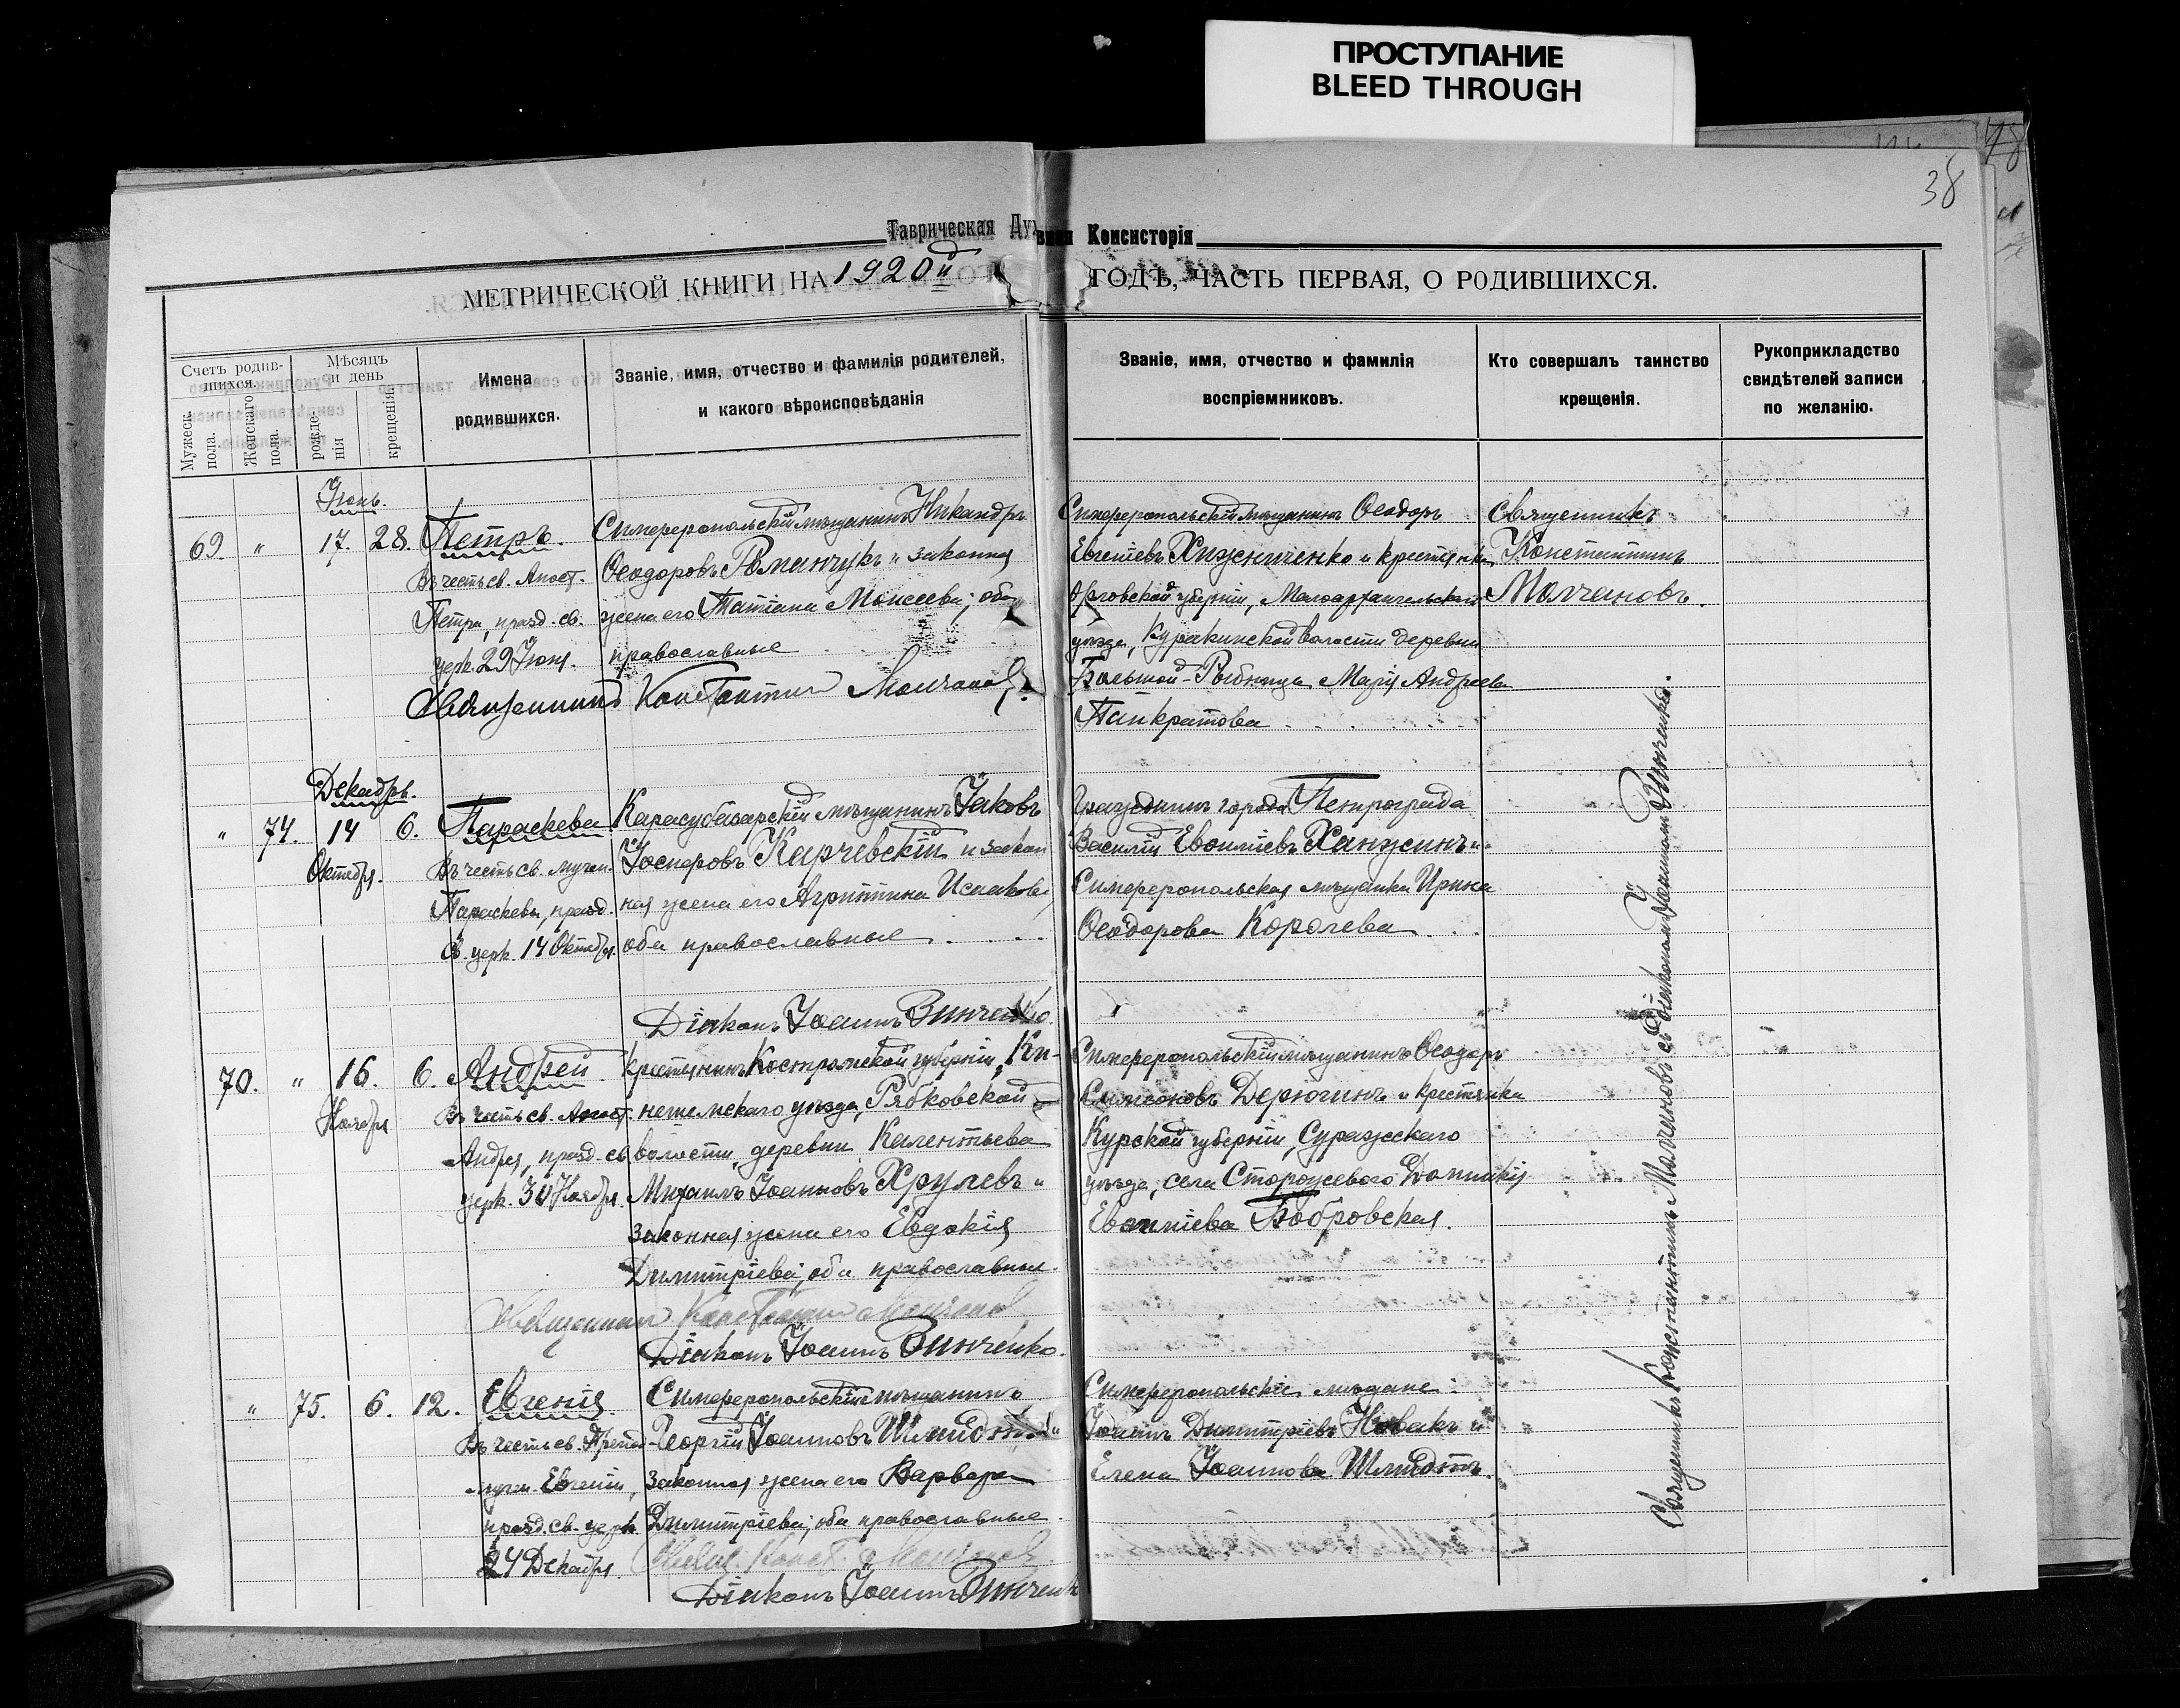 ПРОСТУПАНИЕ
BLEED THROUGH
38
Таврическая Дух
вная Консисторія
МЕТРИЧЕСКОЙ КНИГИ НА 1920й
ГОДЪ, ЧАСТЬ ПЕРВАЯ, О РОДИВШИХСЯ.
Счетъ родив-
шихся.
Мужеск.
пола.
Женскаго
пола.
Мѣсяцъ
и день
рожде-
нія
крещенія.
Имена
родившихся.
Званіе, имя, отчество и фамилія родителей,
и какого вѣроисповѣданія
Званіе, имя, отчество и фамилія
воспріемниковъ.
Кто совершалъ таинство
крещенія.
Рукоприкладство
свидѣтелей записи
по желанію.
69. " 17. 28.
Петръ.
Въ честь св. Апост.
Петра, празд. св.
церк. 29 Іюня.
Симферопольскій мѣщанинъ Никандръ
Ѳеодоровъ Романчукъ и законная
жена его Татіана Моисеева; оба
православные
Священникъ Константинъ Молчановъ.
Симферопольскій мѣщанинъ Ѳеодоръ
Евгеніевъ Хижниченко и крестьянка
Орловской губерніи, Малоархангельскаго
уѣзда, Куракинской волости деревни
Большой-Рыбницы Марія Андреева
Панкратова
Священникъ
Константинъ
Молчановъ.
Декабрь.
" 74. 14 6.
Октября.
Параскева
Въ честь св. мучен.
Параскевы, празд.
св. церк. 14 Октября.
Карасубазарскій мѣщанинъ Іаковъ
Іосифовъ Карчевскій и закон
ная жена его Агриппина Исаакова,
оба православные
Діаконъ Іоаннъ Винченко.
Гражданинъ города Петрограда
Василій Ханжинъ и
Симферопольская мѣщанка Ирина
Ѳеодорова Королева
70. " 16. 6.
Ноября
Андрей
Въ честь св. Апост.
Андрея, празд. св
церк. 30 Ноября.
Крестьянинъ Костромской губерніи, Ки-
нешемскаго уѣзда, Рябковской
волости, деревни Калентьева
Михаилъ Іоанновъ Хрулевъ и
законная жена его Евдокія
Димитріева; оба православные.
Священникъ Константинъ Молчановъ
Діаконъ Іоаннъ Винченко.
Симферопольскій мѣщанинъ Ѳеодоръ
Симеоновъ Дерюгинъ и крестьянка
Курской губерніи, Суражскаго
уѣзда, села Сторожеваго
Бобровская.
" 75. 6. 12.
Евгенія
Въ честь св. Препод-
мучен. Евгеніи,
празд. св. церк.
24 Декабря.
Симферопольскій мѣщанинъ
Георгій Іоанновъ Шмидтъ и
законная жена его Варвара
Димитріева; оба православные.
Священ. Конст. Молчановъ
Діаконъ Іоаннъ Винченко
Симферопольскіе мѣщане:
Іоаннъ Димитріевъ Новакъ и
Елена Іоаннова Шмидтъ.
Священникъ Константинъ Молчановъ съ Діакономъ Іоанномъ Винченко.